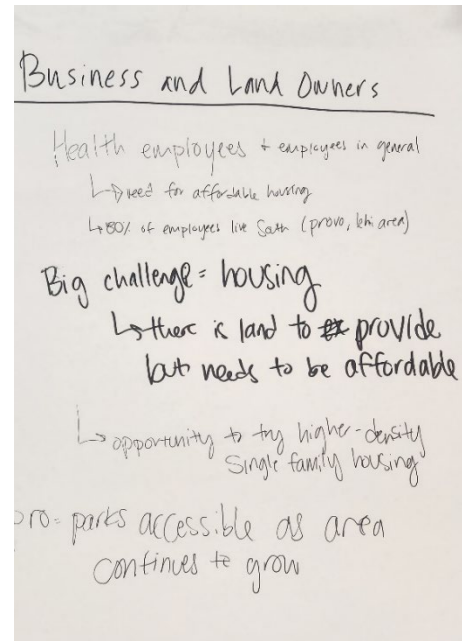 Business and Land Owners
Health employees + employees in general
↳ need for affordable housing
↳ 80% of employees live South (provo, lehi area)
Big challenge = housing
↳ there is land to provide
but needs to be affordable
↳ opportunity to try higher-density
Single family housing
pro = parks accessible as area
continues to grow